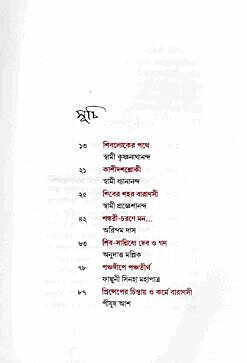 সূচি
১৩ শিবলোকের পথে
স্বামী কৃষ্ণনাথানন্দ
২১ কাশীদশশ্লোকী
স্বামী ধ্যানানন্দ
২৫ শিবের শহর বারাণসী
স্বামী প্রজ্ঞেশানন্দ
৪২ শঙ্করী-চরণে মন...
অরিন্দম দাস
৬৩ শিব-সান্নিধ্যে দেব ও গণ
অনুদাত্ত মল্লিক
৭৮ পঞ্চদীপে পঞ্চতীর্থ
ফাল্গুনী সিনহা মহাপাত্র
৮৭ প্রিন্সেপের চিন্তায় ও কর্মে বারাণসী
পীযূষ আশ